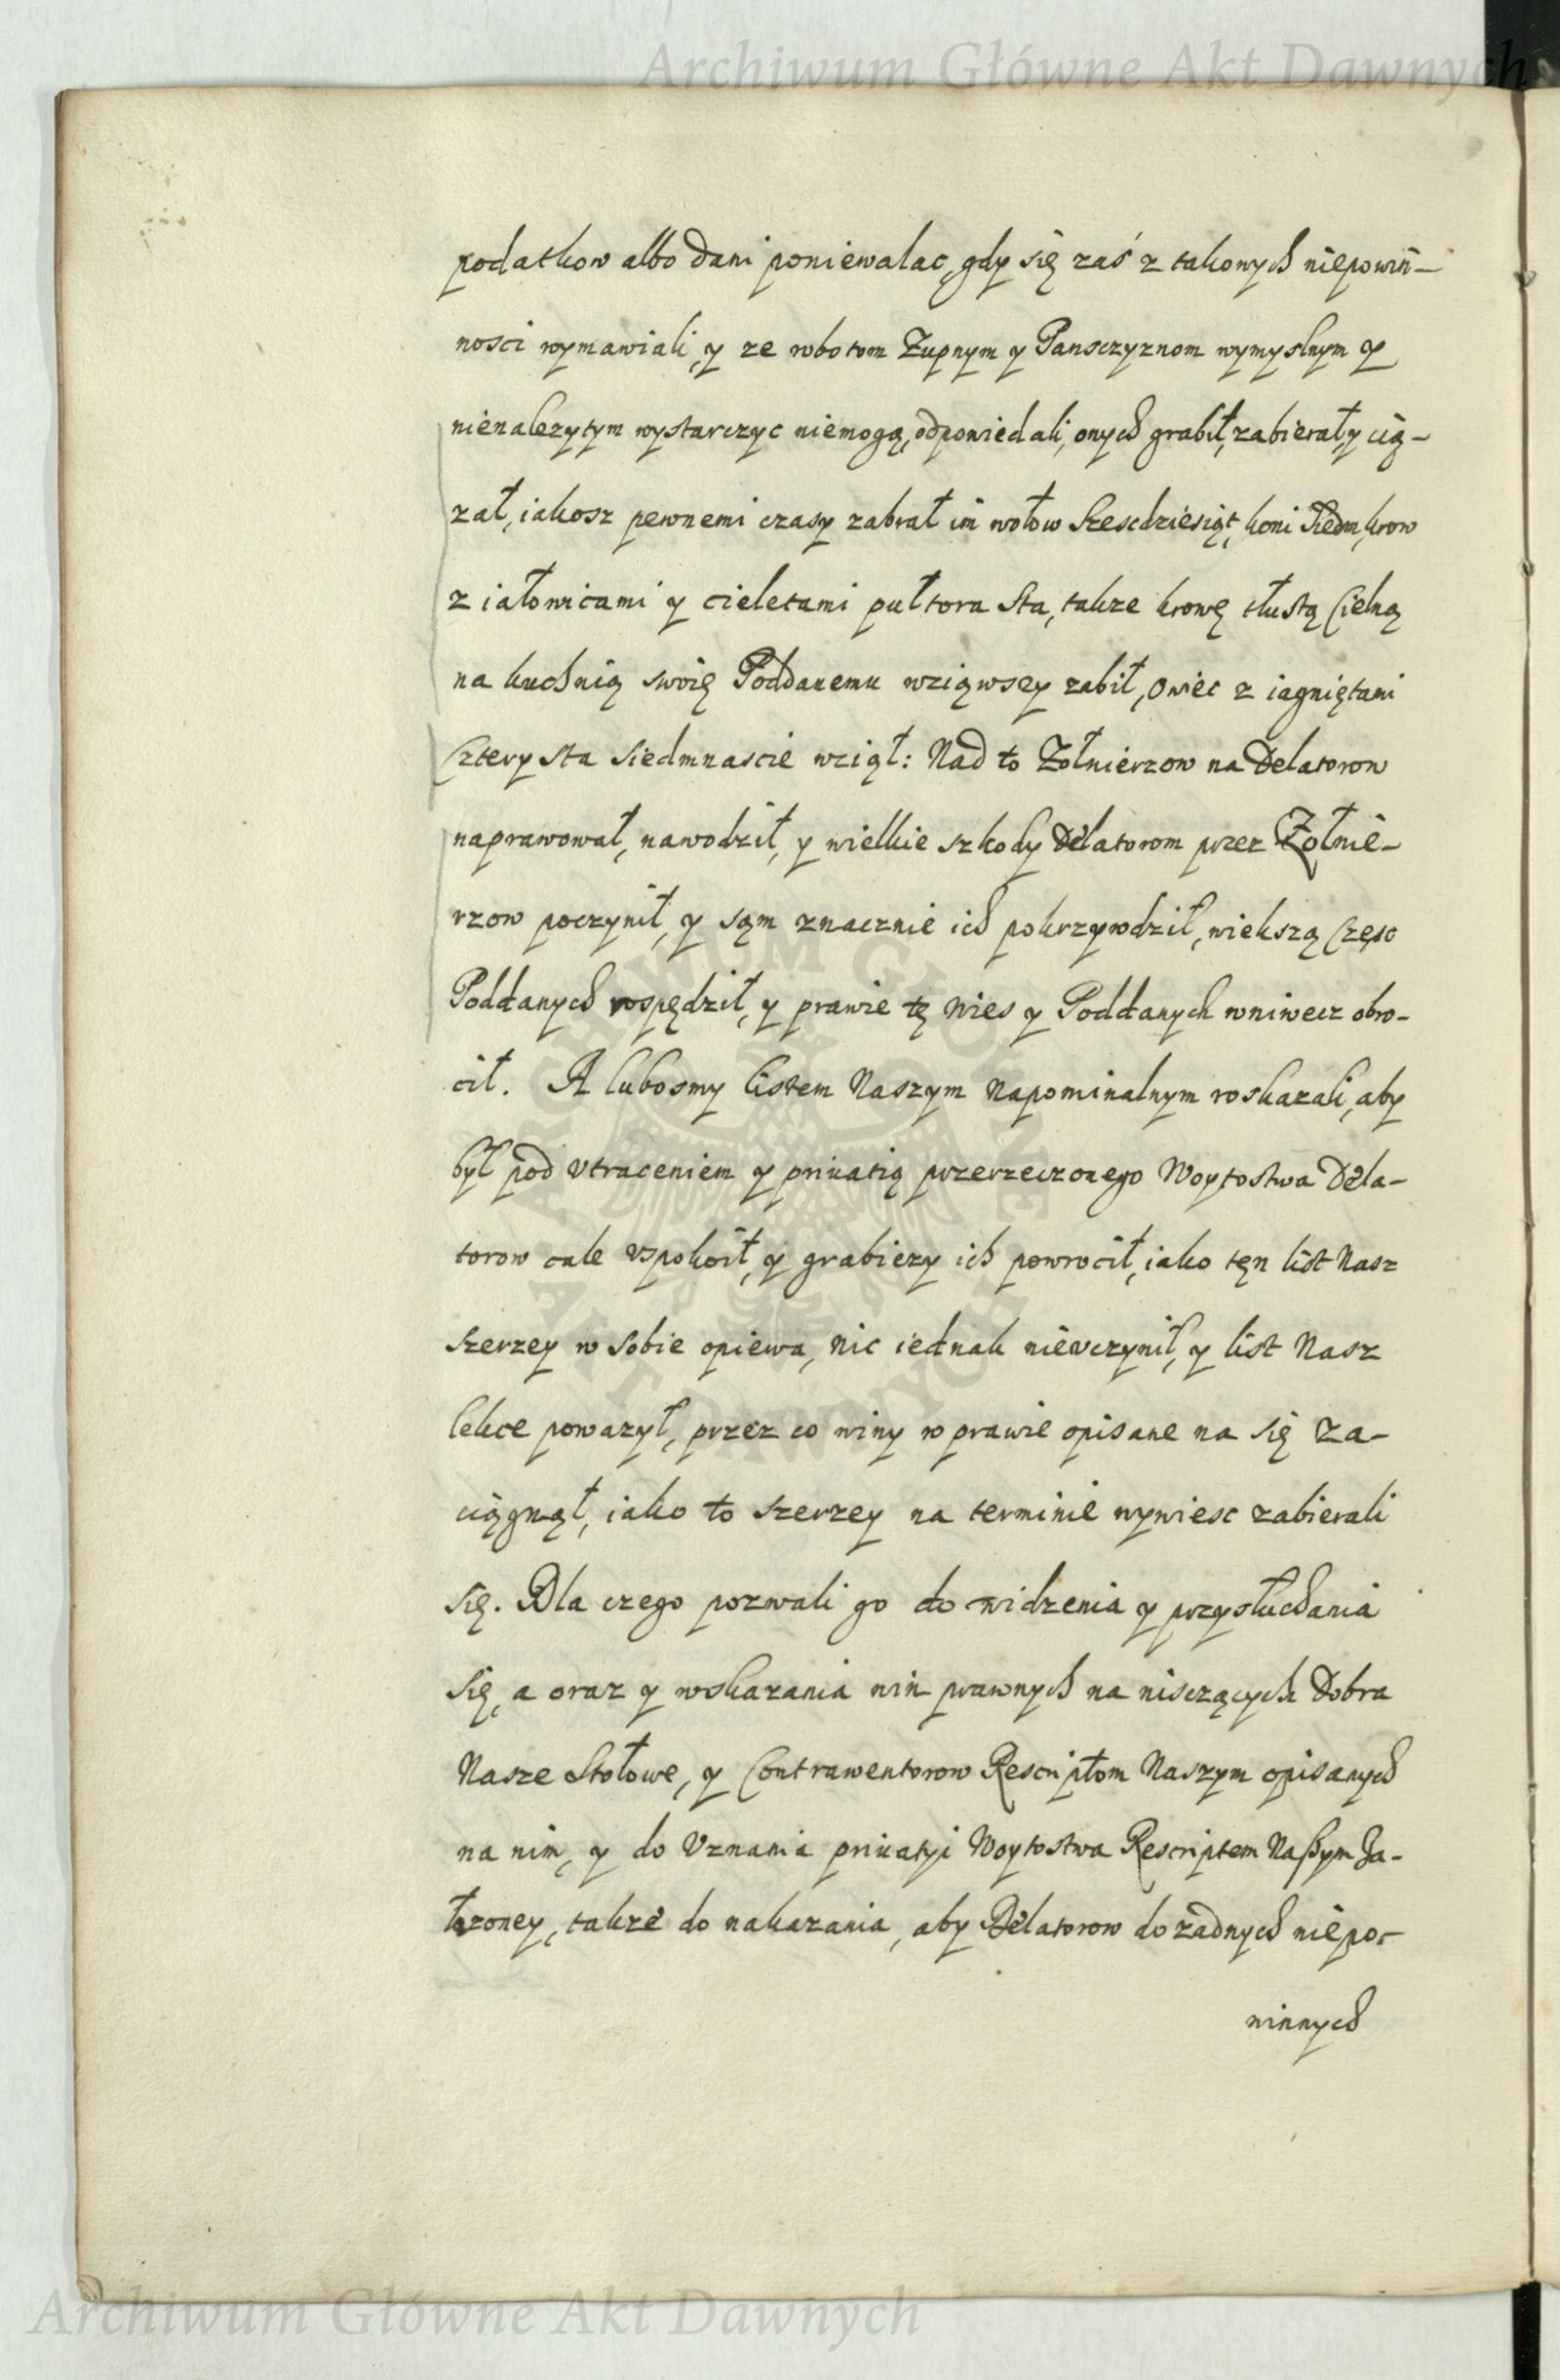 Archiwum Główne Akt Dawnych
podatkow albo dani poniewalac, gdy się zaś z takowych niepowin-
nosci wymawiali, y ze robotom Zupnym y Pansczyznom wymyslnym y
nienalezytym wystarczyc niemogą, odpowiedali, onych grabił, zabierał, y cią-
zał, iakosz pewnemi czasy zabrał im wołow Szescdziesiąt, koni Siedm, krow
z iałowicami y cieletami pułtora Sta, takze krowę tłustą Cielną
na kuchnią swoię Poddanemu wziąwszy zabił, owiec z iagniętami
Cztery sta siedmnascie wziął: Nad to Zołnierzow na Delatorow
naprawował, nawodził, y wielkie szkody Delatorom przez Zołnie-
rzow poczynił, y sąm znacznie ich pokrzywdził, wiekszą Częsc
Poddanych rospędził, y prawie tę wies y Poddanych wniwecz obro-
cił. A lubosmy listem Naszym Napominalnym roskazali, aby
był pod utraceniem y priuatią przerzeczonego Woytostwa Dela-
torow cale uspokoił, y grabiezy ich powrocił, iako tęn list Nasz
szerzey w sobie opiewa, nic iednak nieuczynił, y list Nasz
lekce powazył, przez co winy w prawie opisane na się za-
ciągnął, iako to szerzey na terminie wywiesc zabierali
się. Dla czego pozwali go do widzenia y przysłuchania
się, a oraz y wskazania win prawnych na nisczących Dobra
Nasze Stołowe, y Contrawentorow Rescriptom Naszym opisanych
na nim, y do Uznania priuatyi Woytostwa Rescriptem Naszym Za-
łozoney, takze do nakazania, aby Delatorow do zadnych niepo-
winnych
Archiwum Główne Akt Dawnych